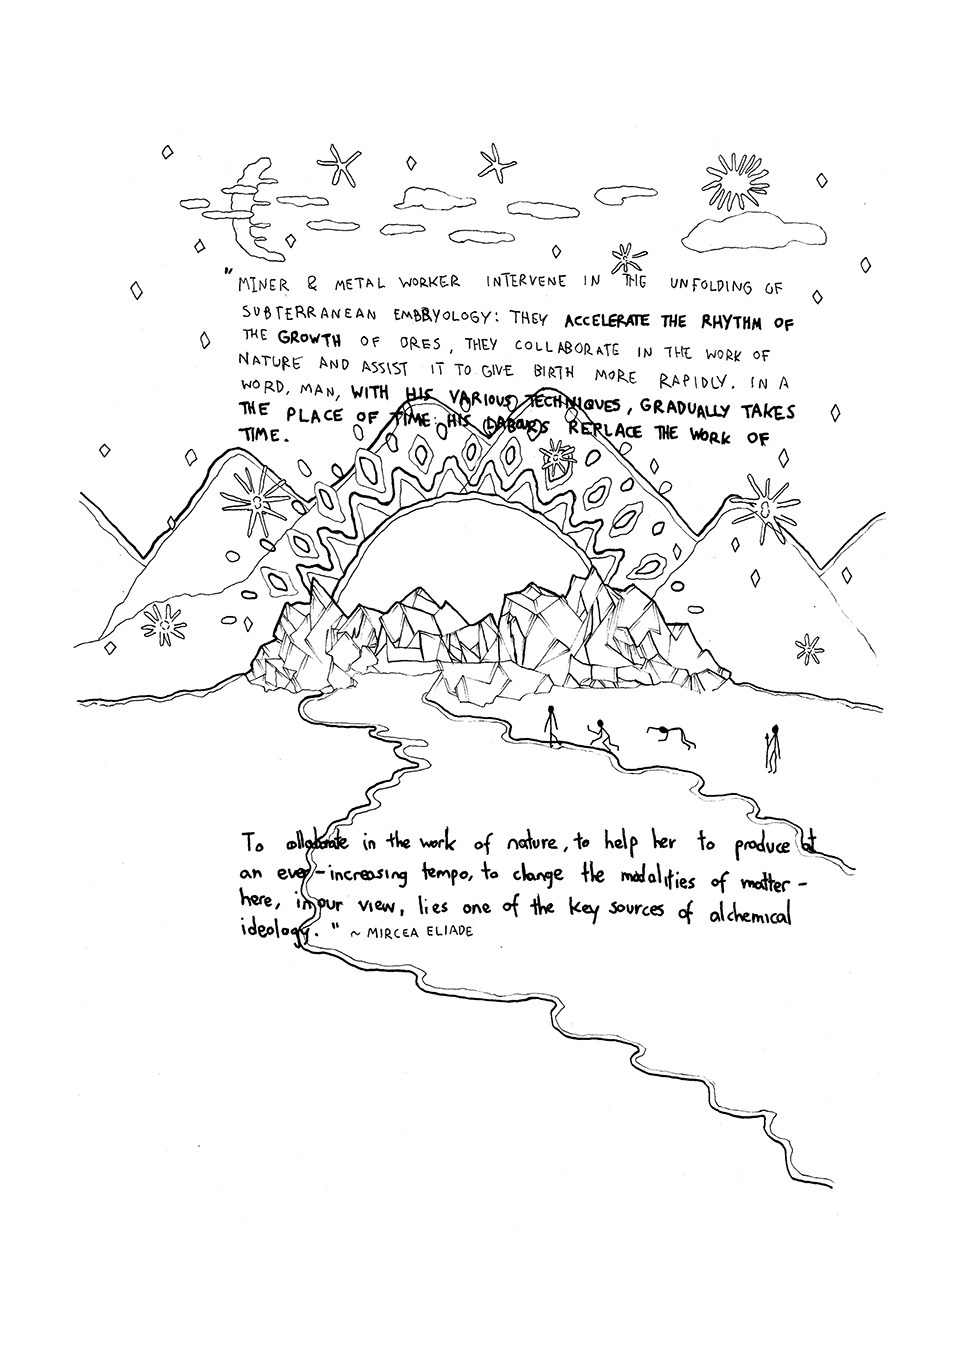 "MINER & METAL WORKER INTERVENE IN THE UNFOLDING OF
SUBTERRANEAN EMBRYOLOGY: THEY ACCELERATE THE RHYTHM OF
THE GROWTH OF ORES, THEY COLLABORATE IN THE WORK OF
NATURE AND ASSIST IT TO GIVE BIRTH MORE RAPIDLY. IN A
WORD, MAN, WITH HIS VARIOUS TECHNIQUES, GRADUALLY TAKES
THE PLACE OF TIME: HIS LABOURS REPLACE THE WORK OF
TIME.
To collaborate in the work of nature, to help her to produce at
an ever-increasing tempo, to change the modalities of matter -
here, in our view, lies one of the key sources of alchemical
ideology." ~ MIRCEA ELIADE